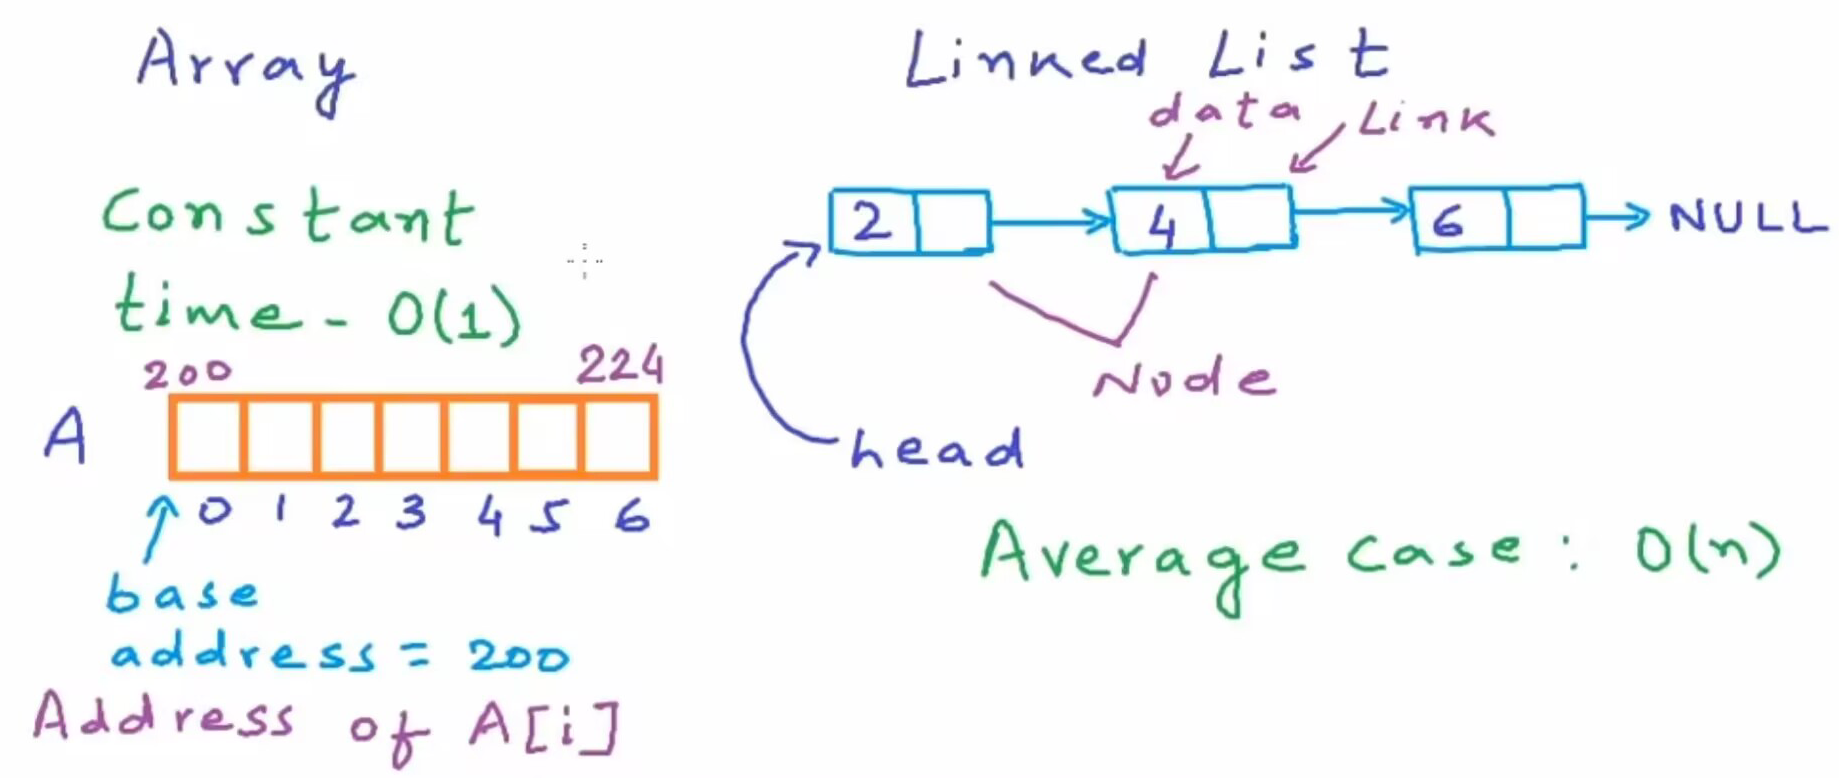 Array
Constant
time - O(1)
200 224
A
0 1 2 3 4 5 6
base
address = 200
Address of A[i]
Linked List
data Link
2 4 6 NULL
Node
head
Average case : O(n)